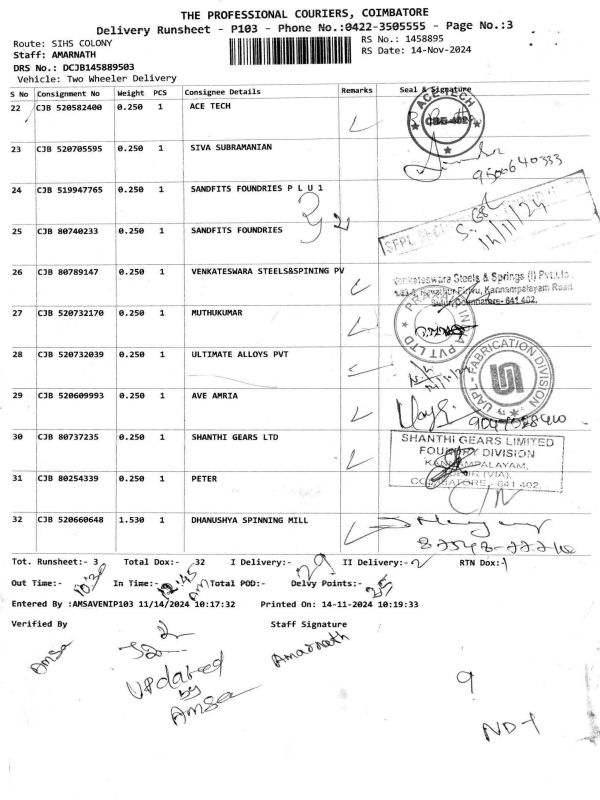 THE PROFESSIONAL COURIERS, COIMBATORE
Delivery Runsheet - P103 - Phone No.:0422-3505555 - Page No.:3
Route: SIHS COLONY
RS No.: 1458895
Staff: AMARNATH
RS Date: 14-Nov-2024
DRS No.: DCJB145889503
Vehicle: Two Wheeler Delivery
S No Consignment No Weight PCS Consignee Details Remarks Seal & Signature
22 CJB 520582400 0.250 1 ACE TECH
ACE TECH
CBE-402
23 CJB 520705595 0.250 1 SIVA SUBRAMANIAN
9500640333
24 CJB 519947765 0.250 1 SANDFITS FOUNDRIES P L U 1
14/11/24
25 CJB 80740233 0.250 1 SANDFITS FOUNDRIES
26 CJB 80789147 0.250 1 VENKATESWARA STEELS&SPINING PV
Venkateswara Steels & Springs (I) Pvt.Ltd.
Kannampalayam Road
Sulur, Coimbatore- 641 402.
27 CJB 520732170 0.250 1 MUTHUKUMAR
PVT LTD
28 CJB 520732039 0.250 1 ULTIMATE ALLOYS PVT
UAPL - FABRICATION DIVISION
29 CJB 520609993 0.250 1 AVE AMRIA
30 CJB 80737235 0.250 1 SHANTHI GEARS LTD
SHANTHI GEARS LIMITED
FOUNDRY DIVISION
KANNAMPALAYAM,
(VIA),
COIMBATORE - 641 402.
31 CJB 80254339 0.250 1 PETER
32 CJB 520660648 1.530 1 DHANUSHYA SPINNING MILL
Tot. Runsheet:- 3 Total Dox:- 32 I Delivery:- 29 II Delivery:- 2 RTN Dox:- 1
Out Time:- 10:30 In Time:- 12:45 AM Total POD:- Delvy Points:- 25
Entered By :AMSAVENIP103 11/14/2024 10:17:32 Printed On: 14-11-2024 10:19:33
Verified By Staff Signature
Amsa
Amarnath
Updated
by
Amsa
9
ND-1